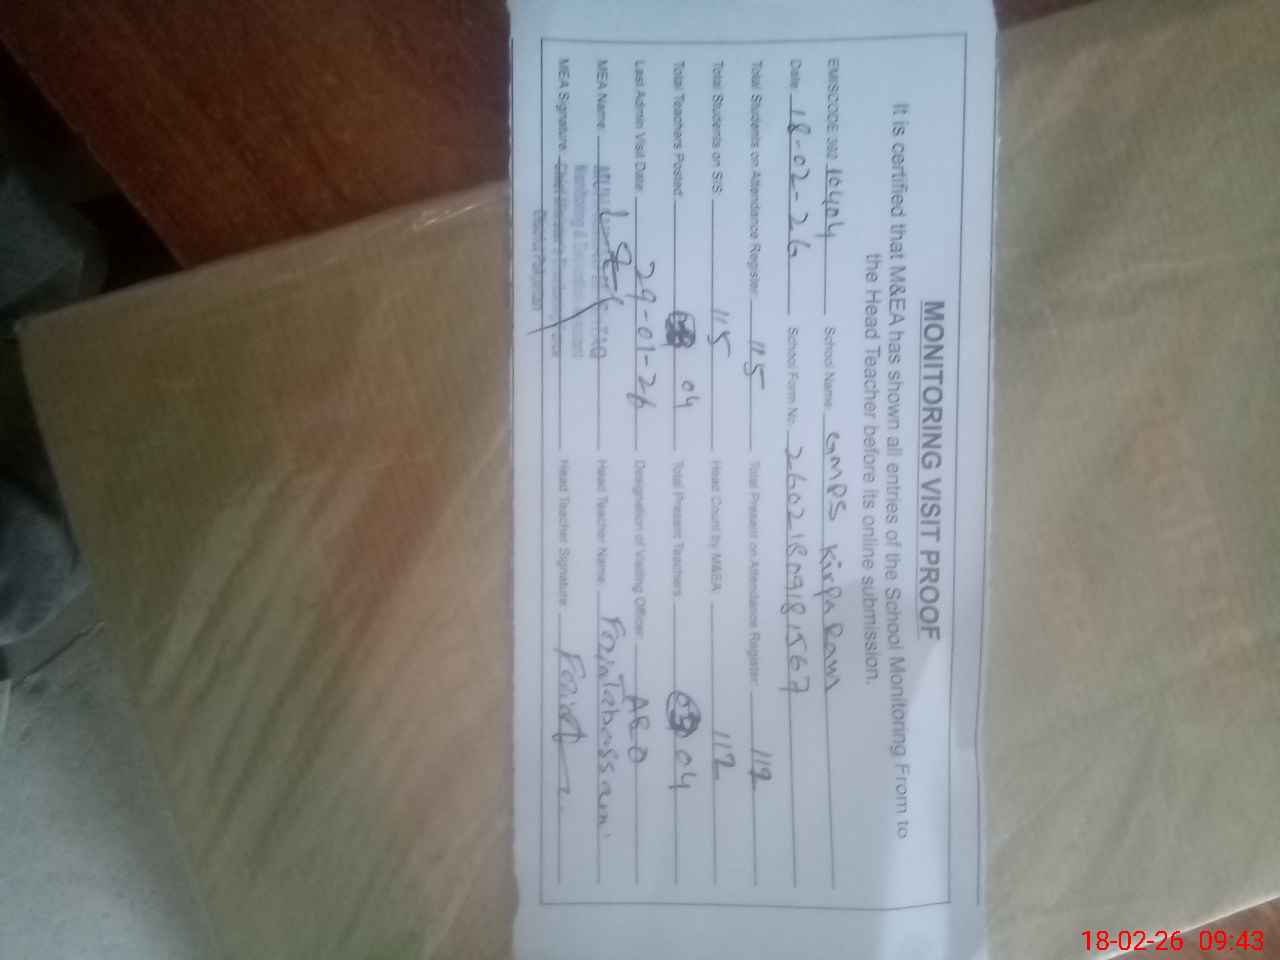 MONITORING VISIT PROOF
It is certified that M&EA has shown all entries of the School Monitoring From to
the Head Teacher before its online submission.
EMISCODE 382 10404 School Name GMPS Kirpa Ram
Date 18-02-26 School Form No. 26021809181567
Total Students on Attendance Register 115 Total Present on Attendance Register 112
Total Students on SIS 115 Head Count by M&EA 112
Total Teachers Posted 04 Total Present Teachers 04
Last Admin Visit Date 29-01-26 Designation of Visiting Officer AEO
MEA Name Head Teacher Name Fozia Tabassam
MEA Signature Head Teacher Signature Fozia
Monitoring &
18-02-26 09:43